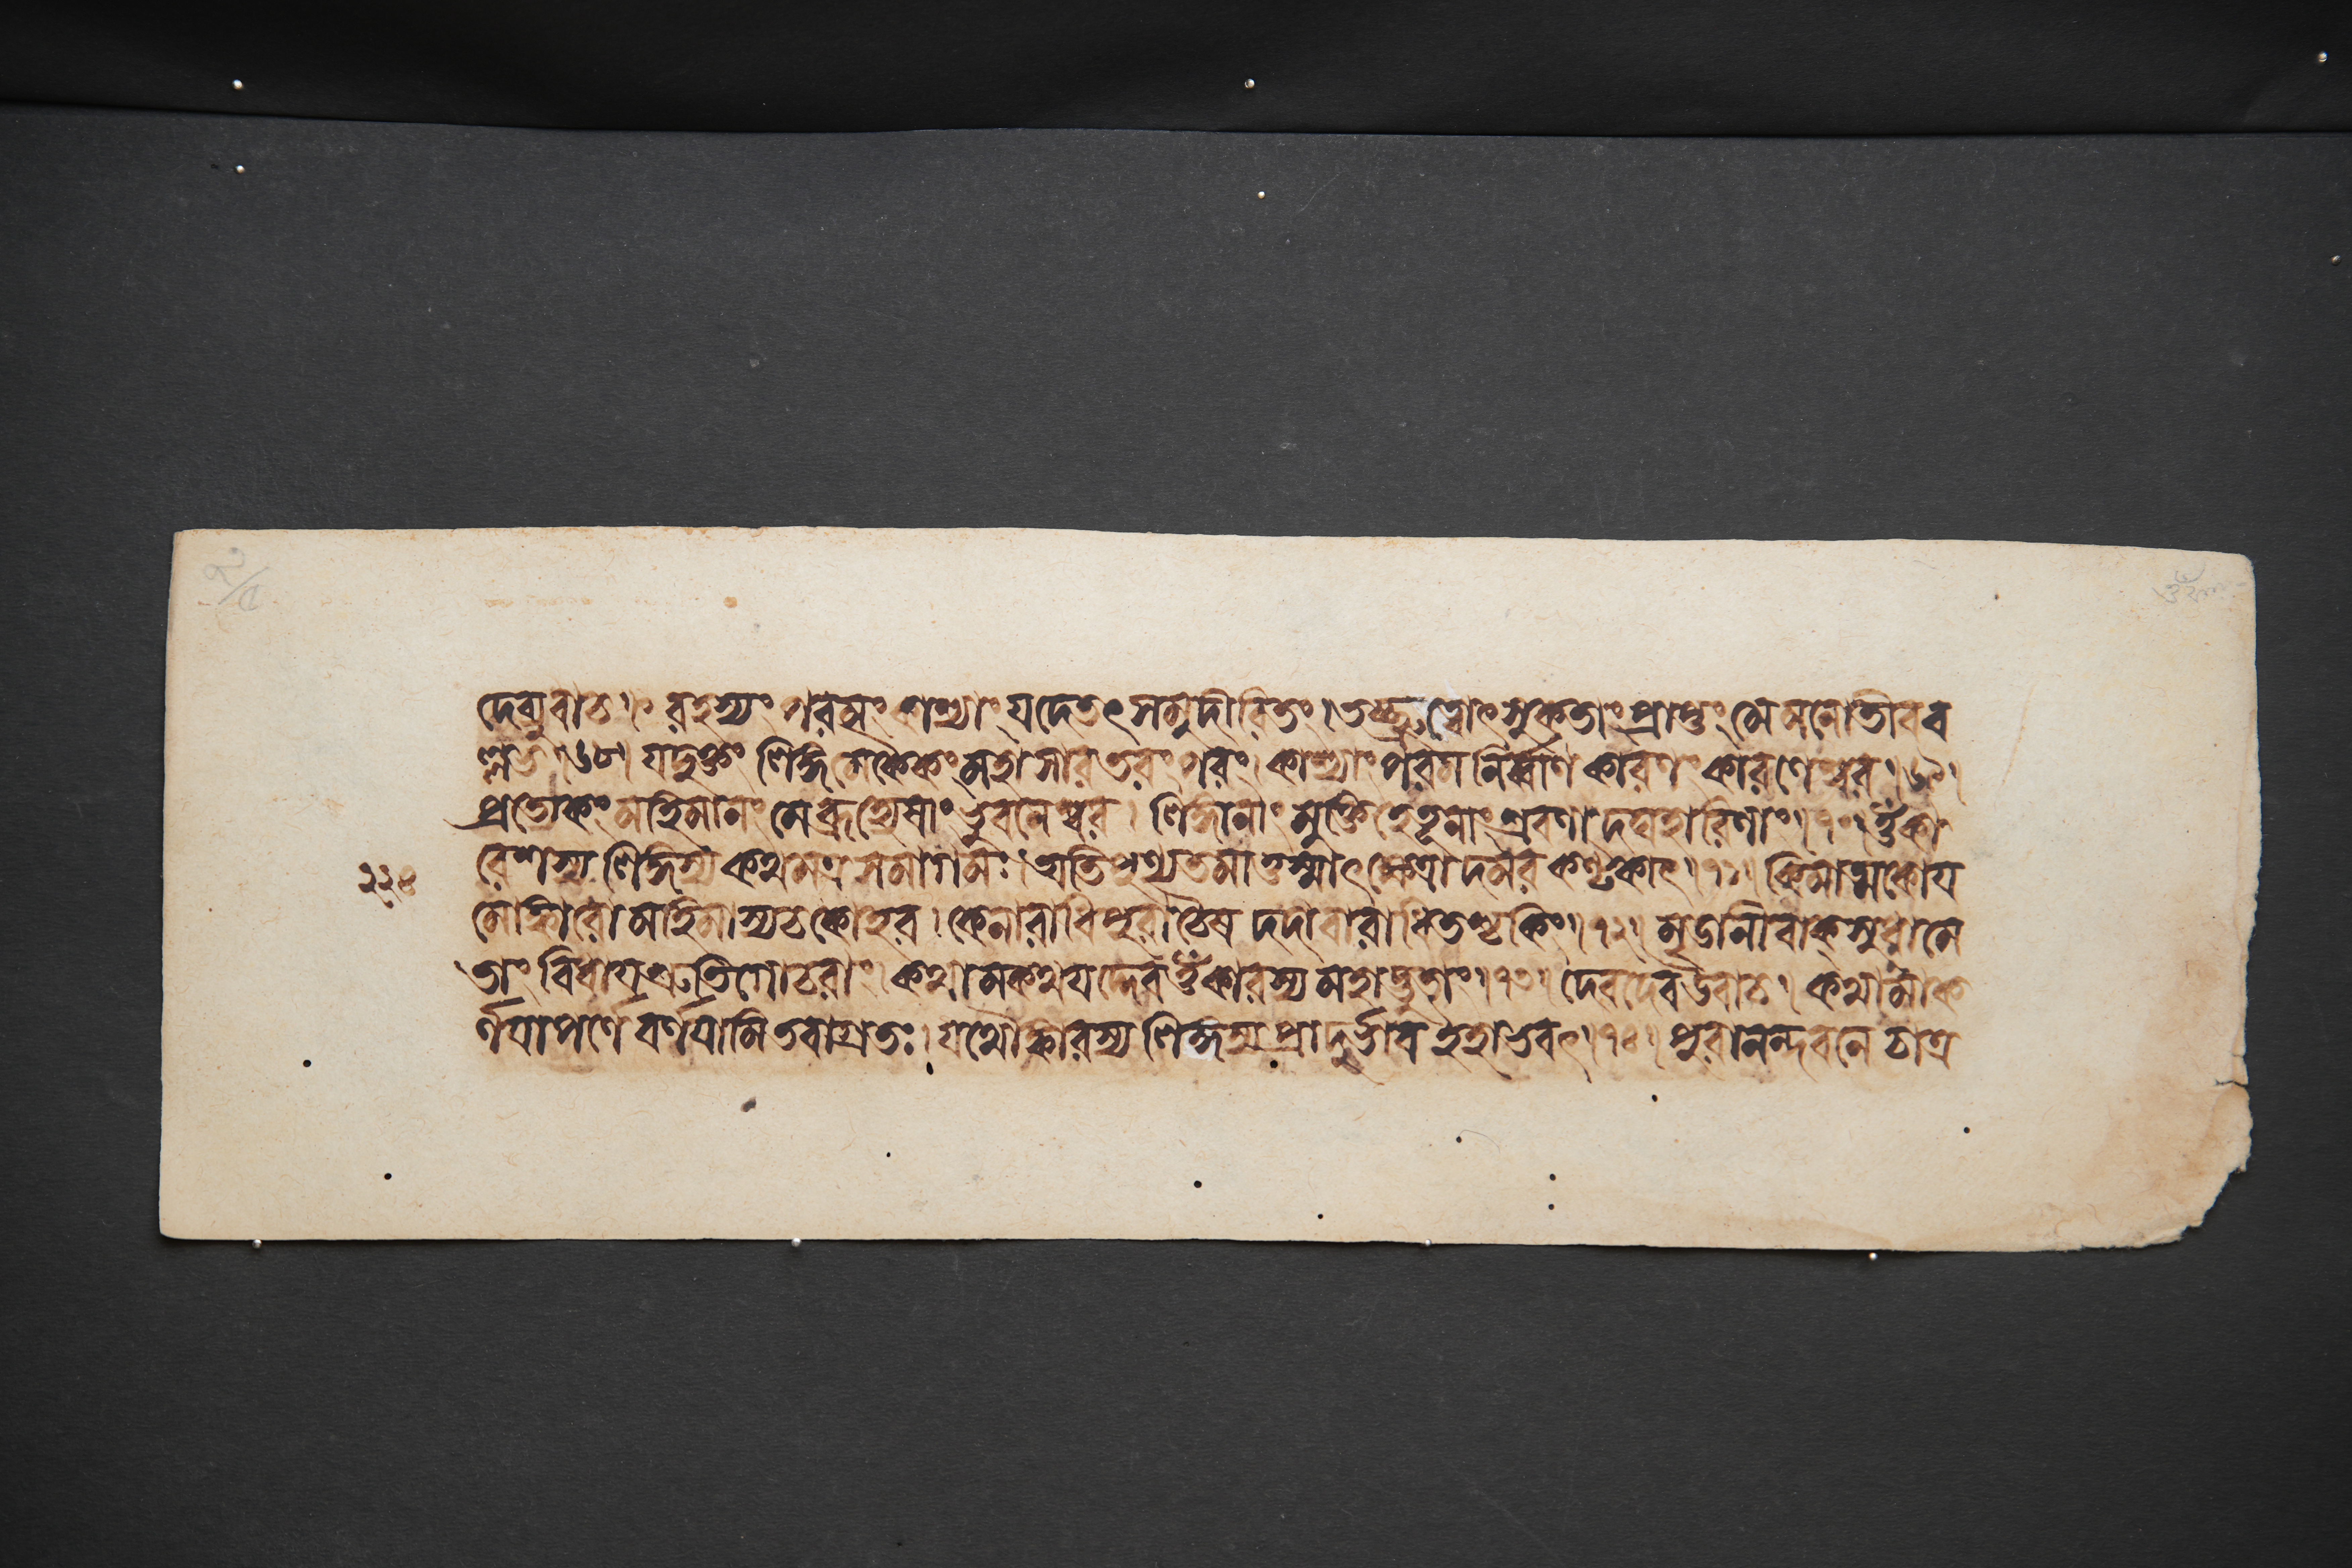 দেব্যুবাচ। রহস্যং পরমং কাশ্যাং যদেতৎ সমুদীরিতং। তচ্ছ্রুত্বোৎসুকতাং প্রাপ্তুং মে মনোতীবব
ল্লভ।৬৮। যদুক্তং লিঙ্গমেকৈকং মহাসারতরং পরং। কাশ্যাং পরমনির্ব্বাণকারণং কারণেশ্বর।৬৯।
প্রত্যেকং মহিমানং মে ব্রূহ্যেষাং ভুবনেশ্বর। লিঙ্গানাং মুক্তিহেতূনাং শ্রবণাদঘহারিণাং।৭০। ওঁকা
২২৪
রেশস্য লিঙ্গস্য কথমত্র সমাগমঃ। অতিপুণ্যতমাত্তস্মাৎ ক্ষেত্রাদমরকণ্টকাৎ।৭১। কিমাত্মকোয
মোঙ্কারো মহিমাস্য চ কো হর। কেনারাধি পুরা চৈষ দদাবারাধিতশ্চ কিং।৭২। মৃডানীবাক্সুধামে
তাং বিধায শ্রুতিগোচরাং। কথামকথযদ্দেব ওঁকারস্য মহাদ্ভুতাং।৭৩। দেবদেব উবাচ। কথামাক
র্ণযাপর্ণে বর্ণযামি তবাগ্রতঃ। যথোঙ্কারস্য লিঙ্গস্য প্রাদুর্ভাব ইহাভবৎ।৭৪। পুরানন্দবনে চাত্র